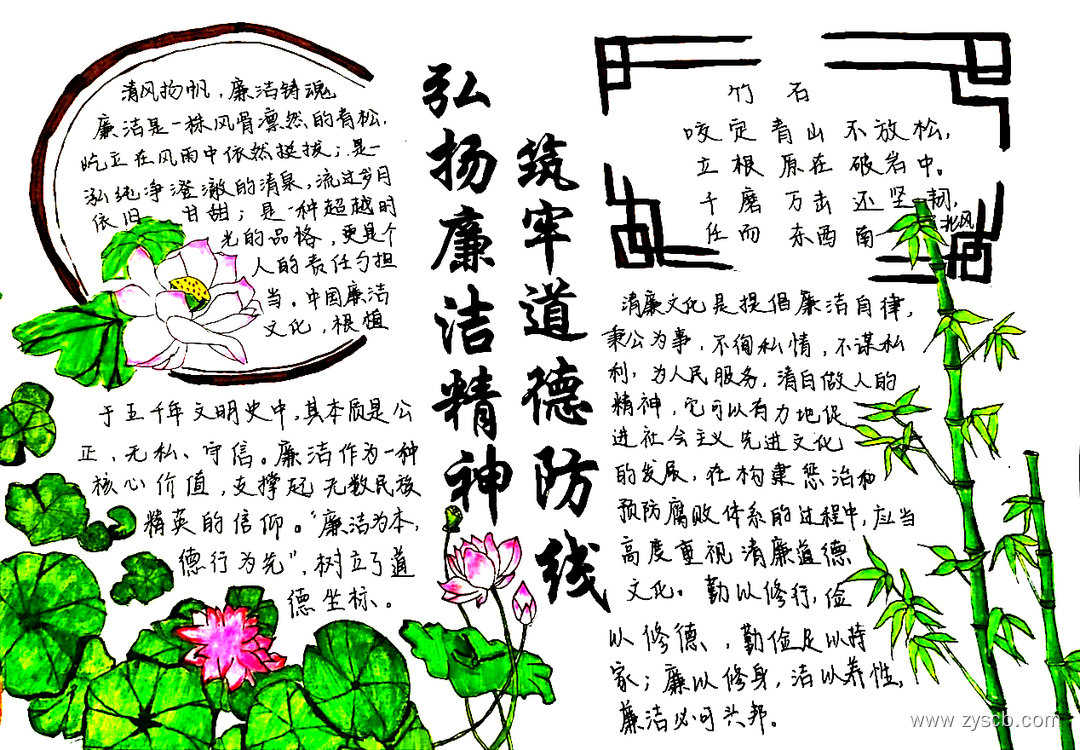 清风扬帆,廉洁铸魂
廉洁是一株风骨凛然的青松,
屹立在风雨中依然挺拔;是一
泓纯净澄澈的清泉,流过岁月
依旧 甘甜;是一种超越时
光的品格,更是个
人的责任与担
当。中国廉洁
文化,根植
于五千年文明史中,其本质是公
正、无私、守信。廉洁作为一种
核心价值,支撑起无数民族
精英的信仰。“廉洁为本,
德行为先”,树立了道
德坐标。
弘扬廉洁精神
筑牢道德防线
竹石
咬定青山不放松,
立根原在破岩中。
千磨万击还坚韧,
任而东西南北风
清廉文化是提倡廉洁自律,
秉公为事,不徇私情,不谋私
利,为人民服务,清白做人的
精神,它可以有力地促
进社会主义先进文化
的发展,在构建惩治和
预防腐败体系的过程中,应当
高度重视清廉道德
文化。勤以修行,俭
以修德、,勤俭足以持
家;廉以修身,洁以养性,
廉洁必可兴邦。
www.zyscb.com